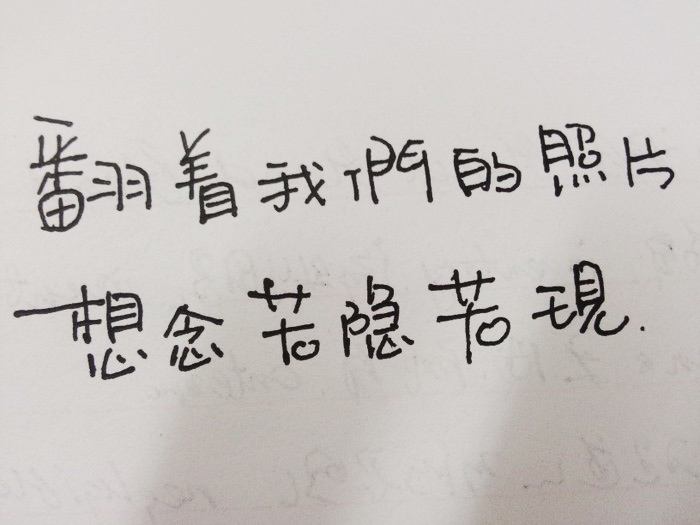 翻着我們的照片
想念若隐若現.